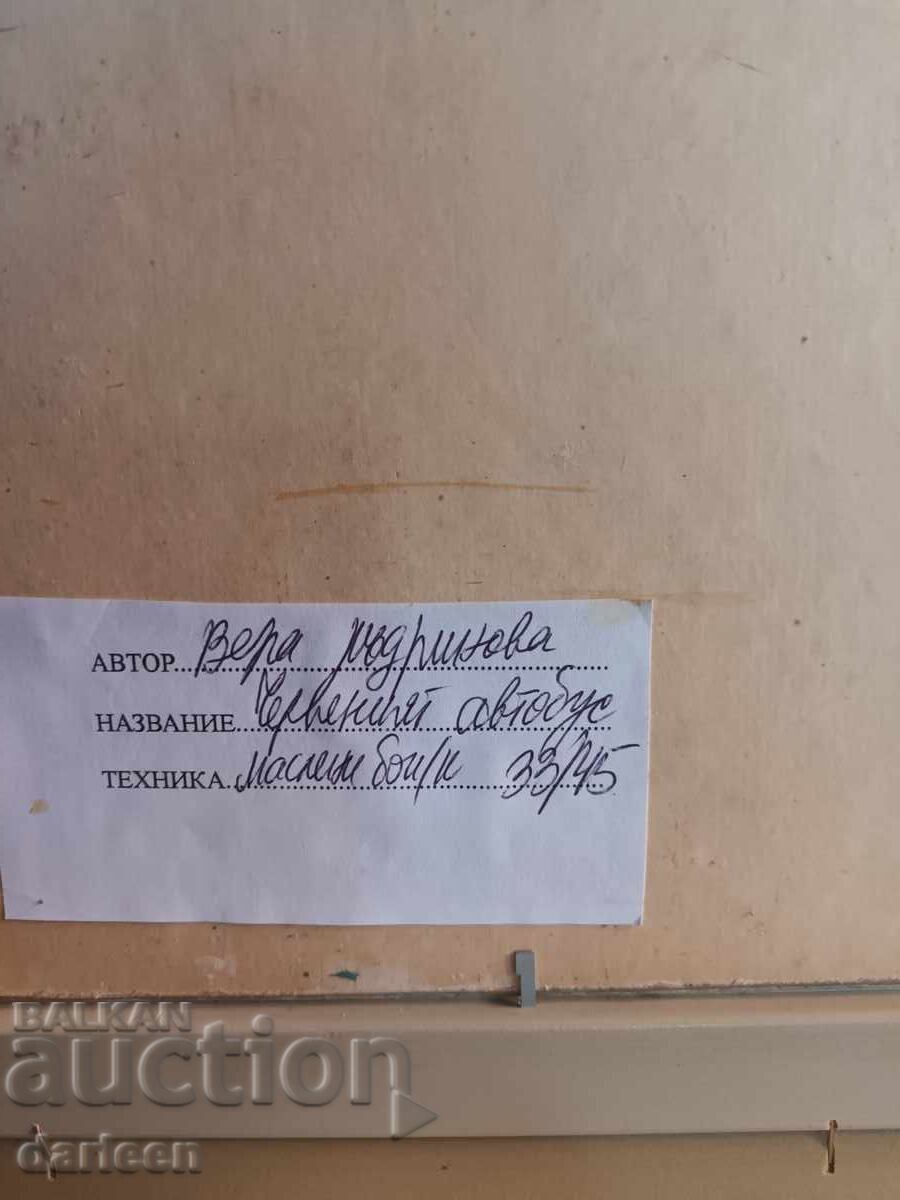 АВТОР Вера Мъдринова
НАЗВАНИЕ Червеният автобус
ТЕХНИКА Маслени бои/к 33/45
BALKAN
auction
darleen